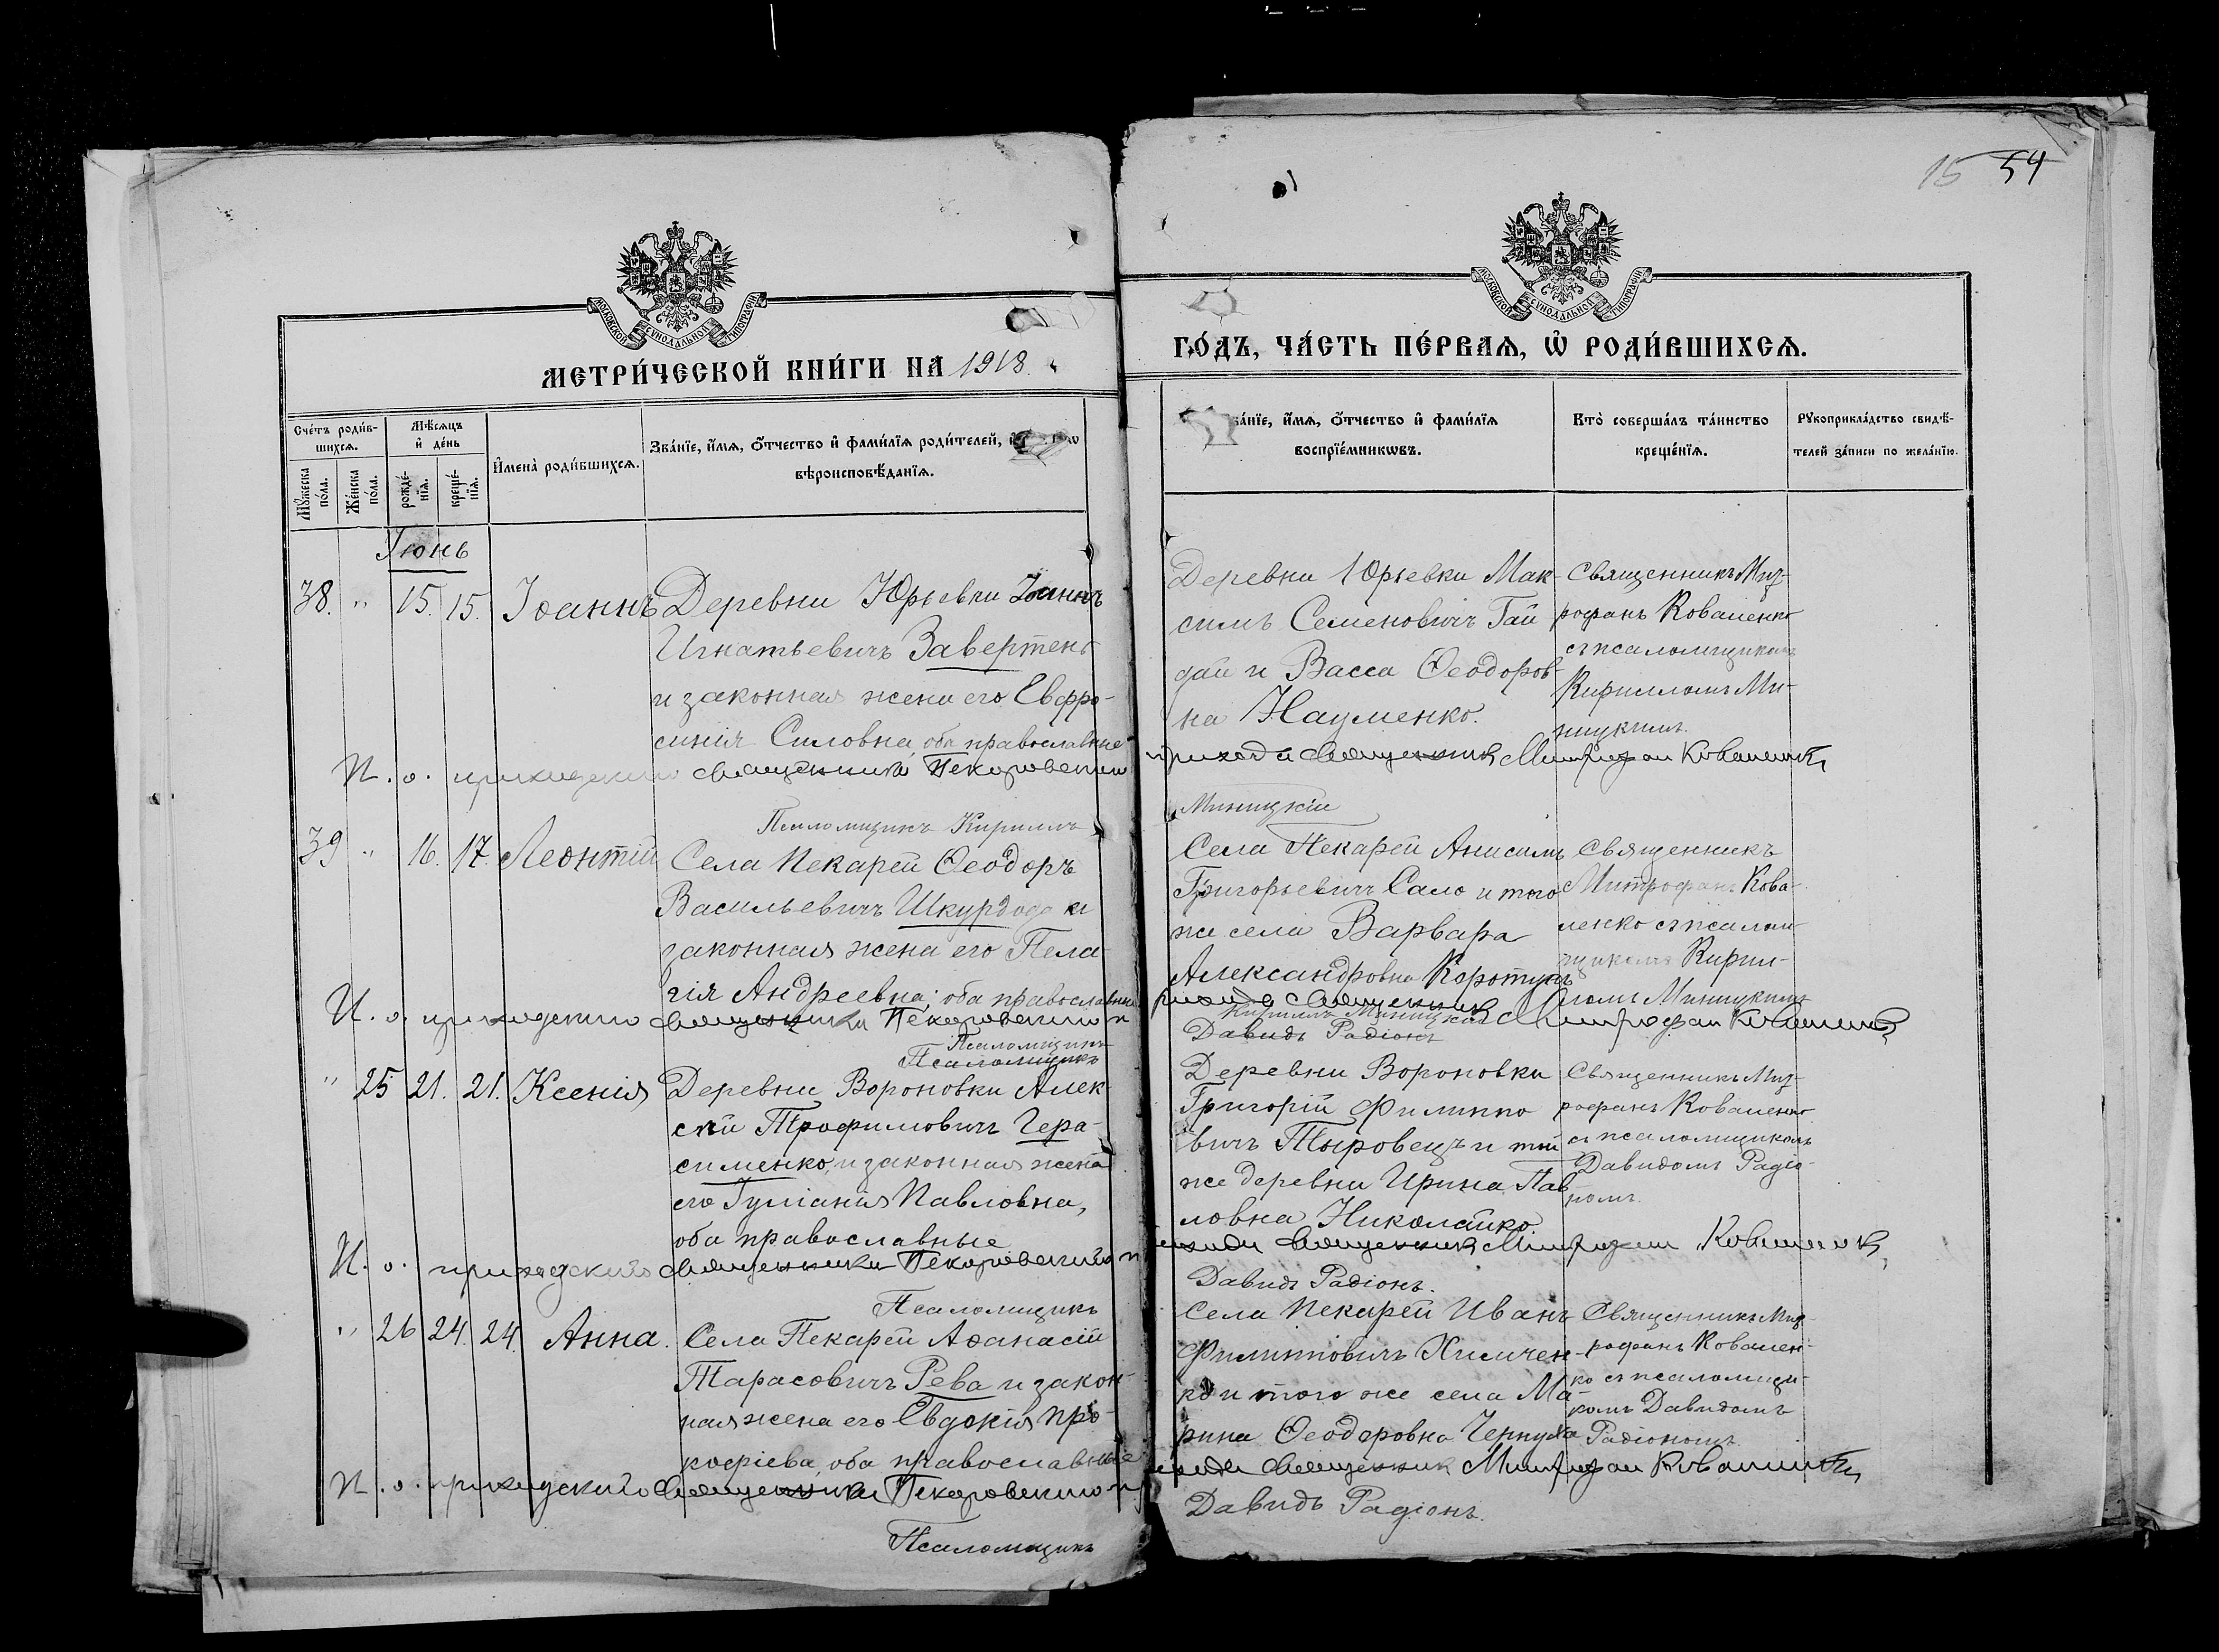 15 54
МОСКОВСКОЙ СѴНОДАЛЬНОЙ ТИПОГРАФІИ
МОСКОВСКОЙ СѴНОДАЛЬНОЙ ТИПОГРАФІИ
МЕТРИ́ЧЕСКОЙ КНИ́ГИ НА 1918
ГО́ДЪ, ЧА́СТЬ ПЕ́РВАЯ, Ѡ РОДИ́ВШИХСЯ.
Сче́тъ роди́в-
шихся.
Мѣ́сяцъ
и де́нь
Му́жеска
по́ла.
Же́нска
по́ла.
рожде́-
нїя.
креще́-
нїя.
И́мена̀ роди́вшихся.
Зва́нїе, и́мя, ѻ҆́тчество и фами́лїя роди́телей,
вѣроисповѣ́данїя.
а́нїе, и́мя, ѻ҆́тчество и фами́лїя
воспрїе́мникѡвъ.
Кто̀ соверша́лъ та́инство
креще́нїя.
Рꙋкоприкла́дство свидѣ́-
телей за́писи по жела́нїю.
Іюнь
38. " 15. 15. Іоаннъ
Деревни Юрьевки Іоаннъ
Игнатьевичъ Завертень
и законная жена его Евфро-
синія Силовна, оба православные
Деревни Юрьевки Мак-
симъ Семеновичъ Гай
дай и Васса Ѳеодоров-
на Науменко.
Священникъ Мит-
рофанъ Коваленко
съ псаломщикомъ
Кирилломъ Ми-
ницкимъ.
И. о. приходскаго священника Пекаровскаго
прихода священник Митрофан Коваленко
Псаломщикъ Кириллъ
Миницкій
39 " 16. 17. Леонтій
Села Пекарей Ѳеодоръ
Васильевичъ Шкурдода и
законная жена его Пела-
гія Андреевна; оба православные
Села Пекарей Анисимъ
Григорьевичъ Сало и того
же села Варвара
Александровна Коротунъ
Священникъ
Митрофанъ Кова-
ленко съ псалом-
щикомъ Кирил-
ломъ Миницкимъ
И. о. приходского священника Пекаровского п
рихода священник Митрофан Коваленко
Псаломщикъ
Кириллъ Миницкій
Псаломщикъ
Давидъ Радіонъ
" 25 21. 21. Ксенія
Деревни Вороновки Алек
сѣй Трофимовичъ Гера-
сименко, и законная жена
его Іуліанія Павловна,
оба православные
Деревни Вороновки
Григорій Филиппо
вичъ Тыровецъ и той
же деревни Ирина Пав
ловна Николайко
Священникъ Мит-
рофанъ Коваленко
съ псаломщикомъ
Давидомъ Радіо-
номъ.
И. о. приходского священника Пекаровского п
рихода священник Митрофан Коваленко
Псаломщикъ
Давидъ Радіонъ.
" 26 24. 24. Анна.
Села Пекарей Аѳанасій
Тарасовичъ Рева и закон-
ная жена его Евдокія Про-
кофіева, оба православные
Села Пекарей Иванъ
Филипповичъ Химчен-
ко и того же села Ма-
рина Ѳеодоровна Чепуха
Священникъ Мит-
рофанъ Ковален-
ко съ псаломщи-
комъ Давидомъ
Радіономъ.
И. о. приходского священника Пекаровского п
рихода священник Митрофан Коваленко
Псаломщикъ
Давидъ Радіонъ.